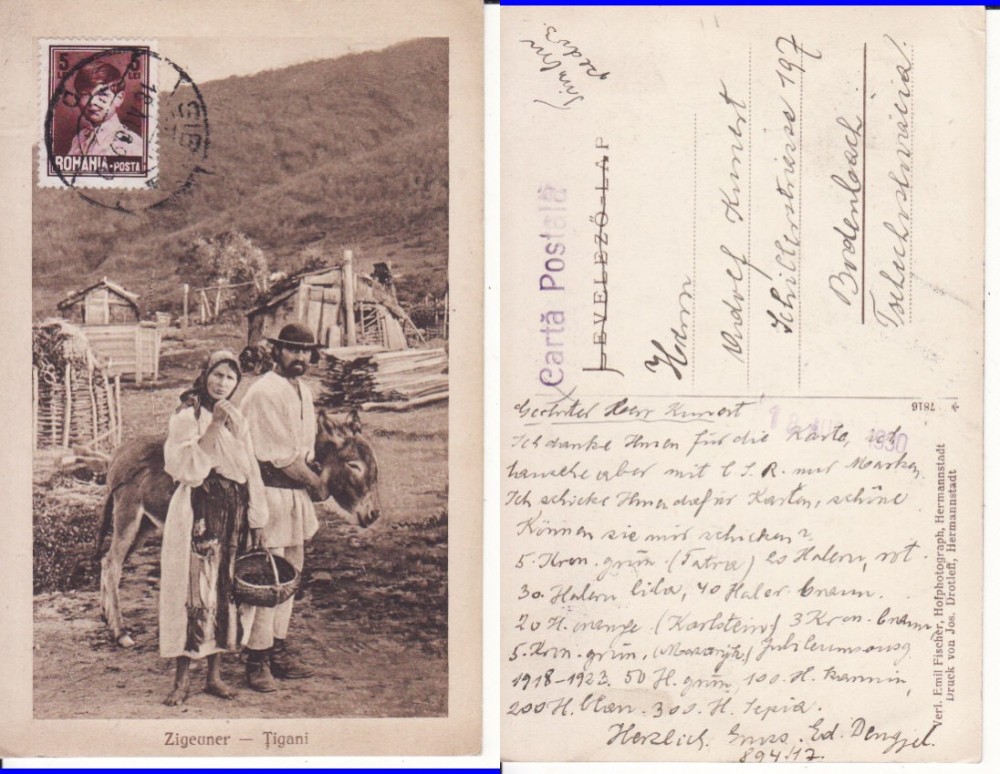 5 LEI
5 LEI
ROMÂNIA-POSTA
SIBIU
Zigeuner — Ţigani
Cartă Postală
LEVELEZŐ-LAP
Herrn
Rudolf Kunert
Schillerstrasse 197
Bodenbach
Tschechslovacia!
7816
1930
Geehrter Herr Kunert
Ich danke Ihnen für die Karte, ich
tausche aber mit C.S.R. nur Marken.
Ich schicke Ihnen dafür Karten, schöne
Können sie mir schicken?
5. Kron. grün (Tatra) 20 Halern, rot.
30. Halern lila, 40 Haler braun.
20 H. orange (Karlstein) 3 Kron. braun
5. Kron. grün, (Masaryk) Jubileumsausg
1918-1923. 50 H. grün, 100. H. karmin,
200 H. blau. 300. H. Sepia.
Herzlich. Gruss. Ed. Dengjel.
894/17
Verl. Emil Fischer, Hofphotograph, Hermannstadt
Druck von Jos. Drotleff, Hermannstadt